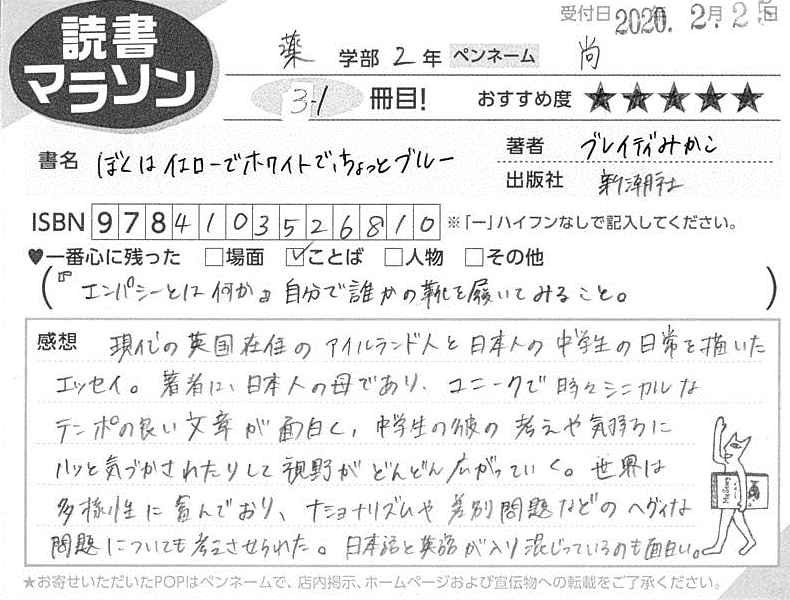 受付日 2020年 2月25日
読書
マラソン
薬 学部 2年 ペンネーム 尚
31 冊目! おすすめ度 ★★★★★
書名 ぼくはイエローでホワイトで、ちょっとブルー
著者 ブレイディみかこ
出版社 新潮社
ISBN 9784103526810 ※「ー」ハイフンなしで記入してください。
♥一番心に残った □場面 ☑ことば □人物 □その他
(『エンパシーとは何か』自分で誰かの靴を履いてみること。)
感想 現代の英国在住のアイルランド人と日本人の中学生の日常を描いた
エッセイ。著者は、日本人の母であり、ユニークで時々シニカルな
テンポの良い文章が面白く、中学生の彼の考えや気持ちに
ハッと気づかされたりして視野がどんどん広がっていく。世界は
多様性に富んでおり、ナショナリズムや差別問題などのヘヴィな
問題についても考えさせられた。日本語と英語が入り混じっているのも面白い。
★お寄せいただいたPOPはペンネームで、店内掲示、ホームページおよび宣伝物への転載をご了承ください。